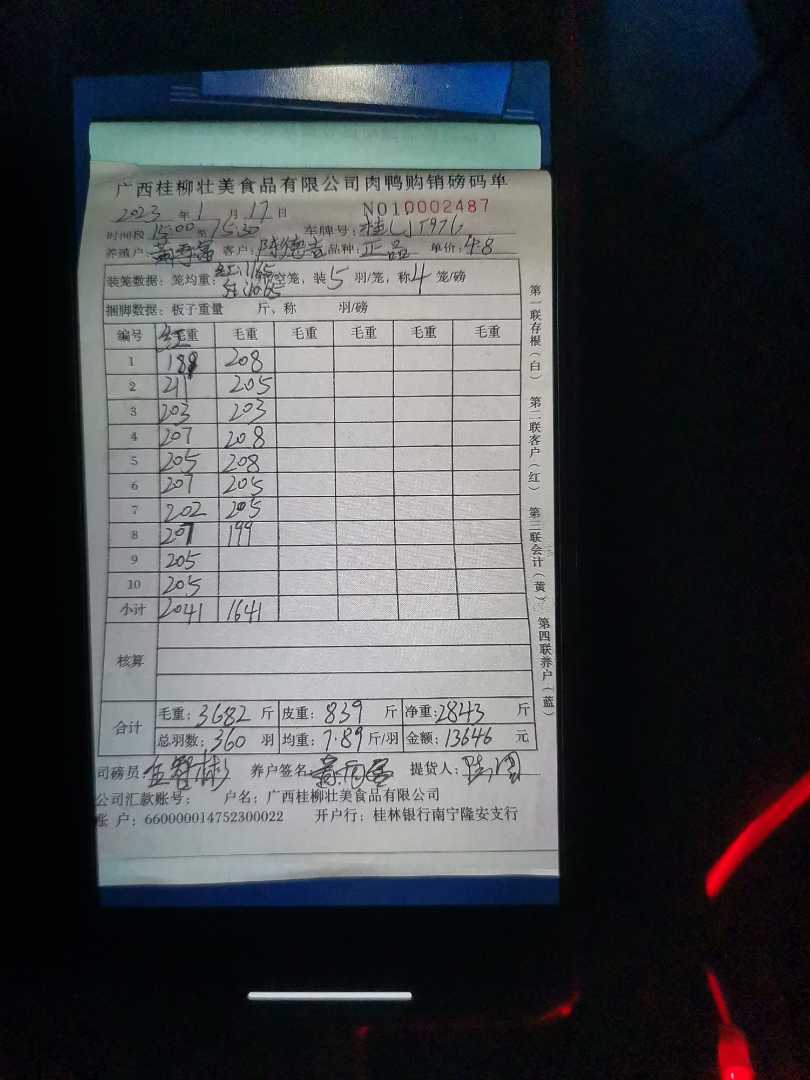 广西桂柳壮美食品有限公司肉鸭购销磅码单
2023 年 1 月 17 日 NO10002487
时间段 15:00 至 15:30 车牌号:
养殖户: 客户: 陈德 品种: 正品 单价: 4.8
装笼数据: 笼均重: 红: 11.65 空笼, 装 5 羽/笼, 称 4 笼/磅
捆脚数据: 板子重量 斤、称 羽/磅
编号 红 毛重 毛重 毛重 毛重 毛重 毛重
1 188 208
2 211 205
3 203 203
4 207 208
5 205 208
6 207 205
7 202 205
8 207 199
9 205
10 205
小计 2041 1641
核算
合计 毛重: 3682 斤 皮重: 839 斤 净重: 2843 斤
总羽数: 360 羽 均重: 7.89 斤/羽 金额: 13646 元
司磅员 养户签名: 提货人:
公司汇款账号: 户名: 广西桂柳壮美食品有限公司
账 户: 660000014752300022 开户行: 桂林银行南宁隆安支行
第一联存根(白) 第二联客户(红) 第三联会计(黄) 第四联养户(蓝)